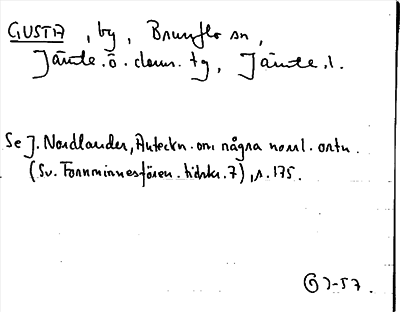 GUSTA, by, Brunflo sn,
Jämtl. ö. doms. tg, Jämtl. l.
Se J. Nordlander, Anteckn. om några norrl. ortn.
(Sv. Fornminnesfören. tidskr. 7), s. 175.
57.